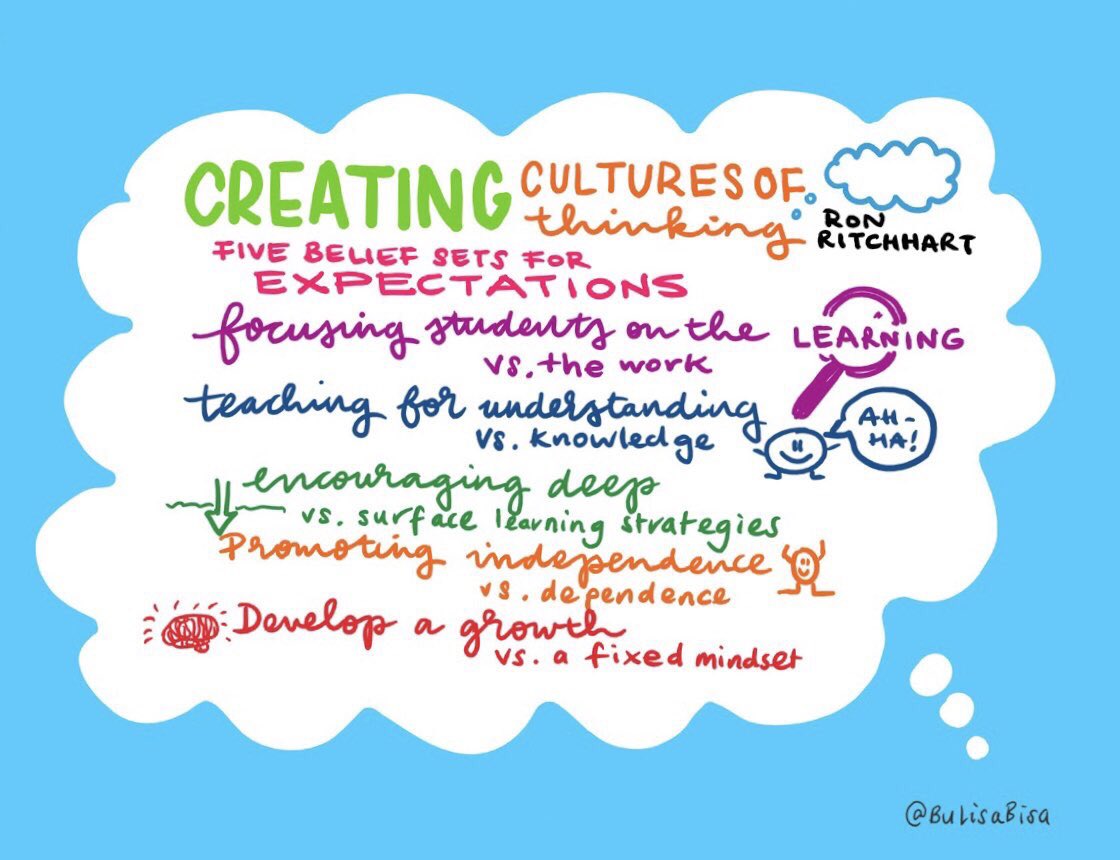 CREATING CULTURES OF
thinking
RON
RITCHHART
FIVE BELIEF SETS FOR
EXPECTATIONS
focusing students on the LEARNING
vs. the work
teaching for understanding
vs. knowledge
AH-
HA!
encouraging deep
vs. surface learning strategies
Promoting independence
vs. dependence
Develop a growth
vs. a fixed mindset
@BuLisaBisa